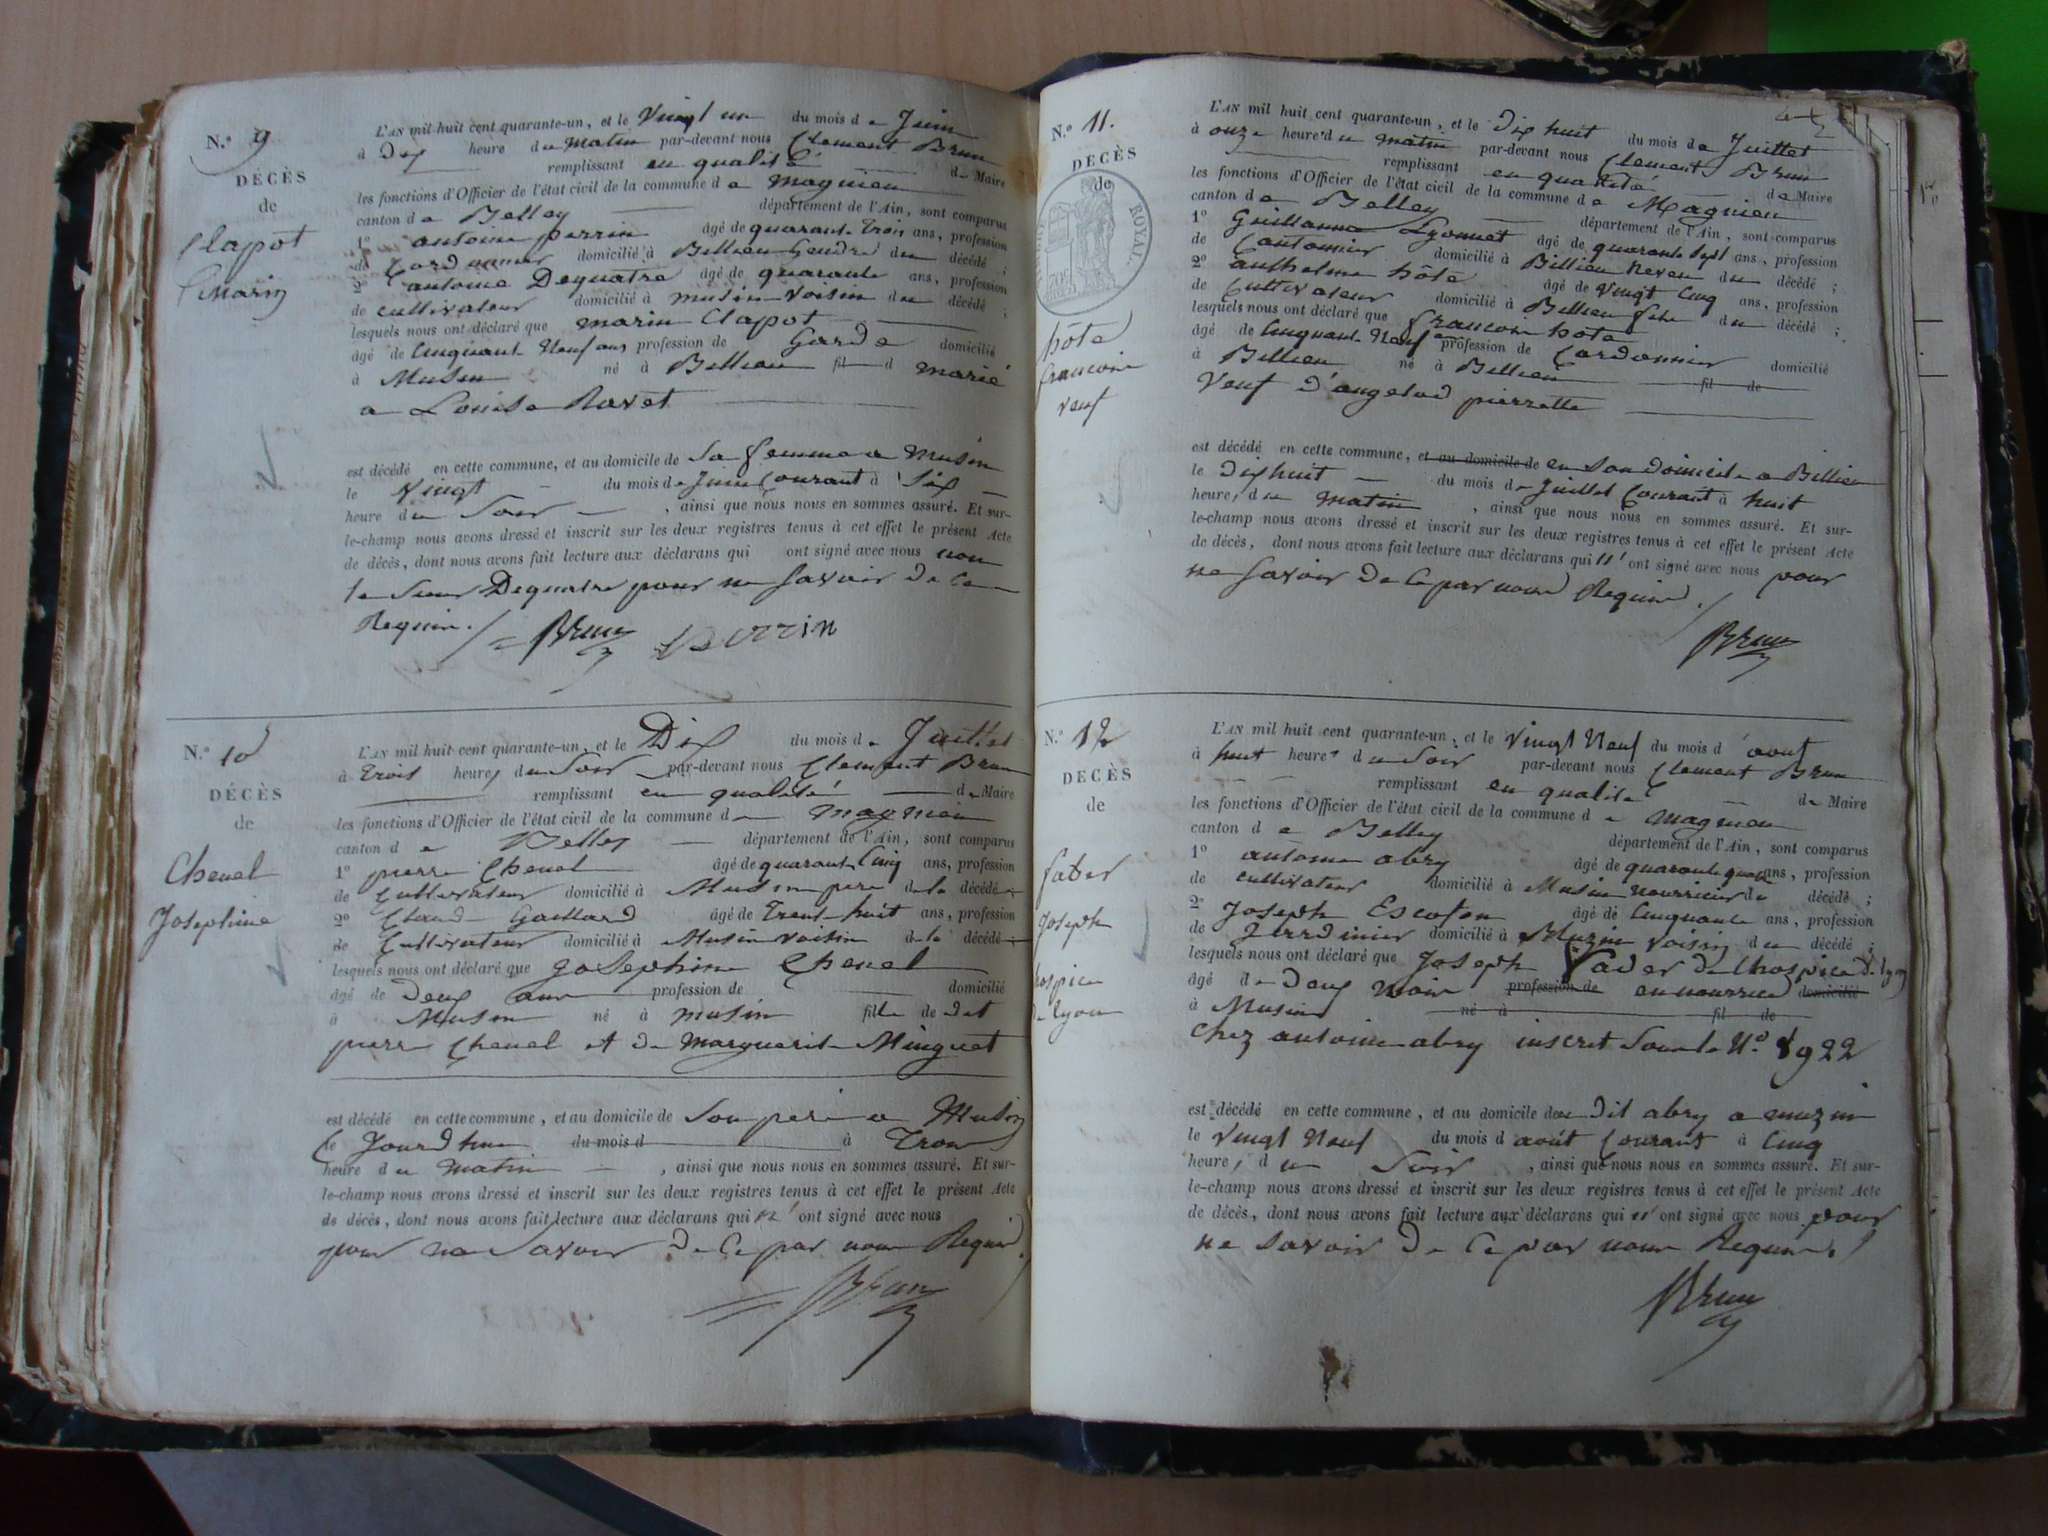 N.º 9
DÉCÈS
de
Clapot
Marin
L'AN mil huit cent quarante-un, et le Vingt un du mois de Juin
à Dix heure du matin par-devant nous Clement Brun
remplissant en qualité de Maire
les fonctions d'Officier de l'état civil de la commune de magnieu
canton de Belley département de l'Ain, sont comparus
1º antoine perrin âgé de quarante trois ans, profession
de Cordonnier domicilié à Billieu Gendre du décédé ;
2º antoine Dequatre âgé de quarante ans, profession
de cultivateur domicilié à musin voisin du décédé ;
lesquels nous ont déclaré que marin Clapot
âgé de Cinquante Neuf ans profession de Garde domicilié
à Musin né à Billieu fil d marié
a Louise Ravet
est décédé en cette commune, et au domicile de Sa femme a Musin
le vingt du mois de Juin Courant à Six
heure du Soir , ainsi que nous nous en sommes assuré. Et sur-
le-champ nous avons dressé et inscrit sur les deux registres tenus à cet effet le présent Acte
de décès, dont nous avons fait lecture aux déclarans qui ont signé avec nous non
le Sieur Dequatre pour ne Savoir de ce
Requin. Brun perrin
N.º 10
DÉCÈS
de
Chenel
Josephine
L'AN mil huit cent quarante-un, et le Dix du mois de Juillet
à Trois heure, du Soir par-devant nous Clement Brun
remplissant en qualité de Maire
les fonctions d'Officier de l'état civil de la commune de magnieu
canton de Belley département de l'Ain, sont comparus
1º pierre Chenel âgé de quarante Cinq ans, profession
de Cultivateur domicilié à Musin pere de la décédé
2º Claude Gaillard âgé de Trente huit ans, profession
de Cultivateur domicilié à Musin voisin de la décédé
lesquels nous ont déclaré que Josephine Chenel
âgé de deux ans profession de domicilié
à Musin né à musin fille de dit
pierre Chenel et de Marguerite Minguet
est décédé en cette commune, et au domicile de Son pere a Musin
le Jourdhui du mois d à Trois
heure du matin , ainsi que nous nous en sommes assuré. Et sur-
le-champ nous avons dressé et inscrit sur les deux registres tenus à cet effet le présent Acte
de décès, dont nous avons fait lecture aux déclarans qui n' ont signé avec nous
pour ne Savoir de Ce par nous Requis.
Brun
N.º 11.
DÉCÈS
de
ROYAL
hôte
francois
veuf
L'AN mil huit cent quarante-un, et le Dix huit du mois de Juillet
à onze heure du matin par-devant nous Clement Brun
remplissant en qualité de Maire
les fonctions d'Officier de l'état civil de la commune de Magnieu
canton de Belley département de l'Ain, sont comparus
1º Guillaume Lyonnet âgé de quarante sept ans, profession
de Cantonnier domicilié à Billieu Neveu du décédé ;
2º anthelme hôte âgé de vingt Cinq ans, profession
de Cultivateur domicilié à Billieu fils du décédé ;
lesquels nous ont déclaré que francois hôte
âgé de Cinquante Neuf profession de Cordonnier domicilié
à Billieu né à Billieu fil de
Veuf d'angelod pierrette
est décédé en cette commune, et au domicile de en son domicile a Billieu
le dixhuit du mois de Juillet Courant à huit
heure, du matin , ainsi que nous nous en sommes assuré. Et sur-
le-champ nous avons dressé et inscrit sur les deux registres tenus à cet effet le présent Acte
de décès, dont nous avons fait lecture aux déclarans qui n' ont signé avec nous pour
ne Savoir de Ce par nous Requis.
Brun
N.º 12
DÉCÈS
de
fader
Joseph
hospice
de lyon
L'AN mil huit cent quarante-un, et le vingt Neuf du mois d'aout
à huit heure du Soir par-devant nous Clement Brun
remplissant en qualité de Maire
les fonctions d'Officier de l'état civil de la commune de magnieu
canton de Belley département de l'Ain, sont comparus
1º antoine abry âgé de quarante quatre ans, profession
de cultivateur domicilié à Musin nourricier du décédé ;
2º Joseph Escofon âgé de Cinquante ans, profession
de Jerrdinier domicilié à Muzin voisin du décédé ;
lesquels nous ont déclaré que Joseph fader de lhospice de lyon
âgé de Deux mois profession de en nourrice domicilié
à Musin né à fil de
chez antoine abry inscrit Sous le Nº 8922
est décédé en cette commune, et au domicile du dit abry a muzin
le Vingt Neuf du mois d'août Courant à Cinq
heure, du Soir , ainsi que nous nous en sommes assuré. Et sur-
le-champ nous avons dressé et inscrit sur les deux registres tenus à cet effet le présent Acte
de décès, dont nous avons fait lecture aux déclarans qui n' ont signé avec nous pour
ne savoir de Ce par nous Requis.
Brun